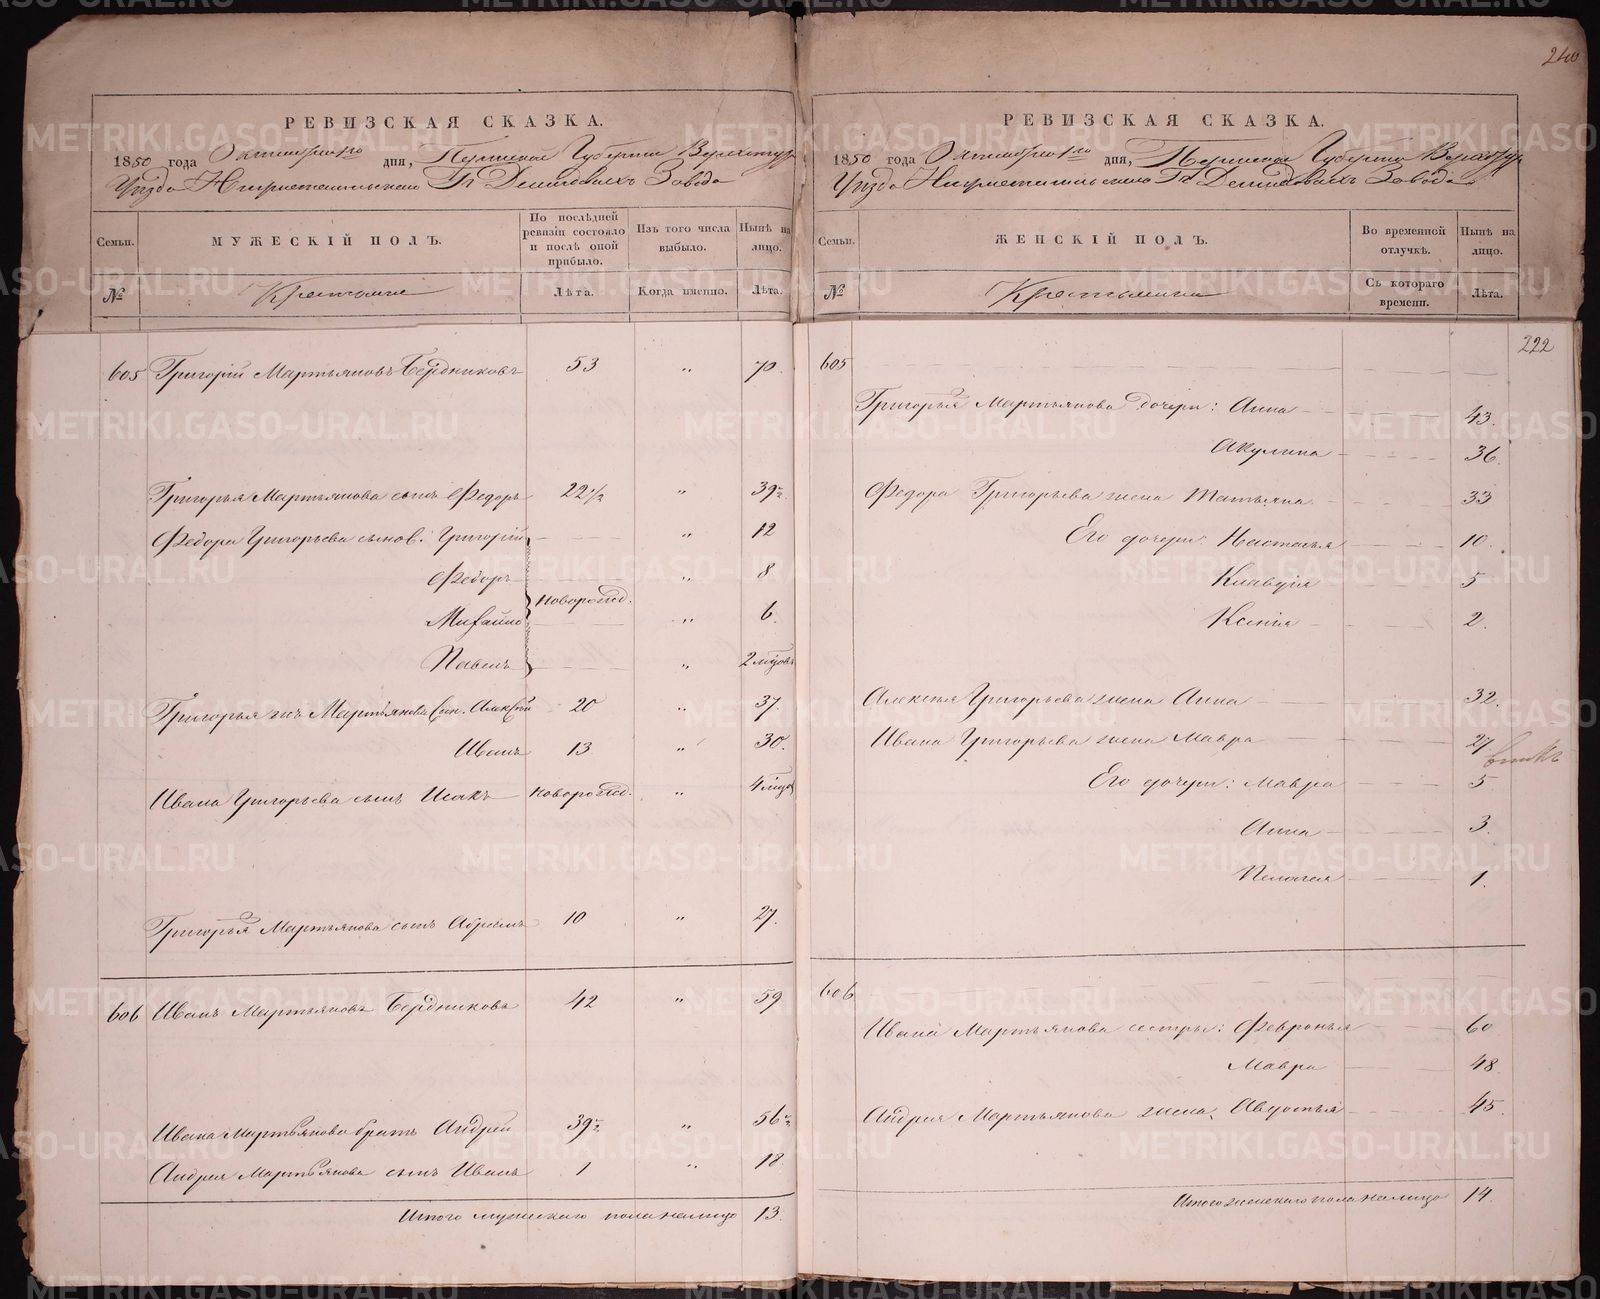 240
РЕВИЗСКАЯ СКАЗКА.
1850 года Октября го дня, Пермской Губернiи Верхотур
Уѣзда Нижнетагильскаго Гг. Демидовыхъ Завода
Семьи. МУЖЕСКIЙ ПОЛЪ. По послѣдней ревизiи состояло и послѣ оной прибыло. Изъ того числа выбыло. Нынѣ на лицо.
№ Крестьяне Лѣта. Когда именно. Лѣта.
605 Григорiй Мартьяновъ Бердниковъ 53 " 70.
Григорья Мартьянова сынъ Федоръ 22 1/2 " 39 1/2
Федора Григорьева сынов: Григорiй " 12
Федоръ " 8
Новорожд.
Михайло " 6.
Павелъ " 2 мѣсов
Григорья жъ Мартьянова сын. Алексѣй 20 " 37.
Иванъ 13 " 30.
Ивана Григорьева сынъ Исакъ Новорожд. " 4 мѣсо
Григорья Мартьянова сынъ Абрамъ 10 " 27.
606 Иванъ Мартьяновъ Бердниковъ 42 " 59
Ивана Мартьянова братъ Андрей 39 1/2 " 56 1/2
Андрея Мартьянова сынъ Иванъ 1 " 18.
Итого мужескаго пола налицо 13.
РЕВИЗСКАЯ СКАЗКА.
1850 года Октября го дня, Пермской Губернiи Верхотур
Уѣзда Нижнетагильскаго Гг. Демидовыхъ Завода
Семьи. ЖЕНСКIЙ ПОЛЪ. Во временной отлучкѣ. Нынѣ на лицо.
№ Крестьянки Съ котораго времени. Лѣта.
222
605
Григорья Мартьянова дочери: Анна 43.
Акулина 36.
Федора Григорьева жена Татьяна 33
Его дочери: Настасья 10.
Клавдiя 5
Ксенiя 2.
Алексѣя Григорьева жена Анна 32.
Ивана Григорьева жена Мавра 27
Его дочери: Мавра 5
Анна 3.
Пелагея 1.
606
Ивана Мартьянова сестры: Февронья 60
Мавра 48.
Андрея Мартьянова жена Авдотья 45.
Итого женскаго пола налицо 14.
METRIKI.GASO-URAL.RU